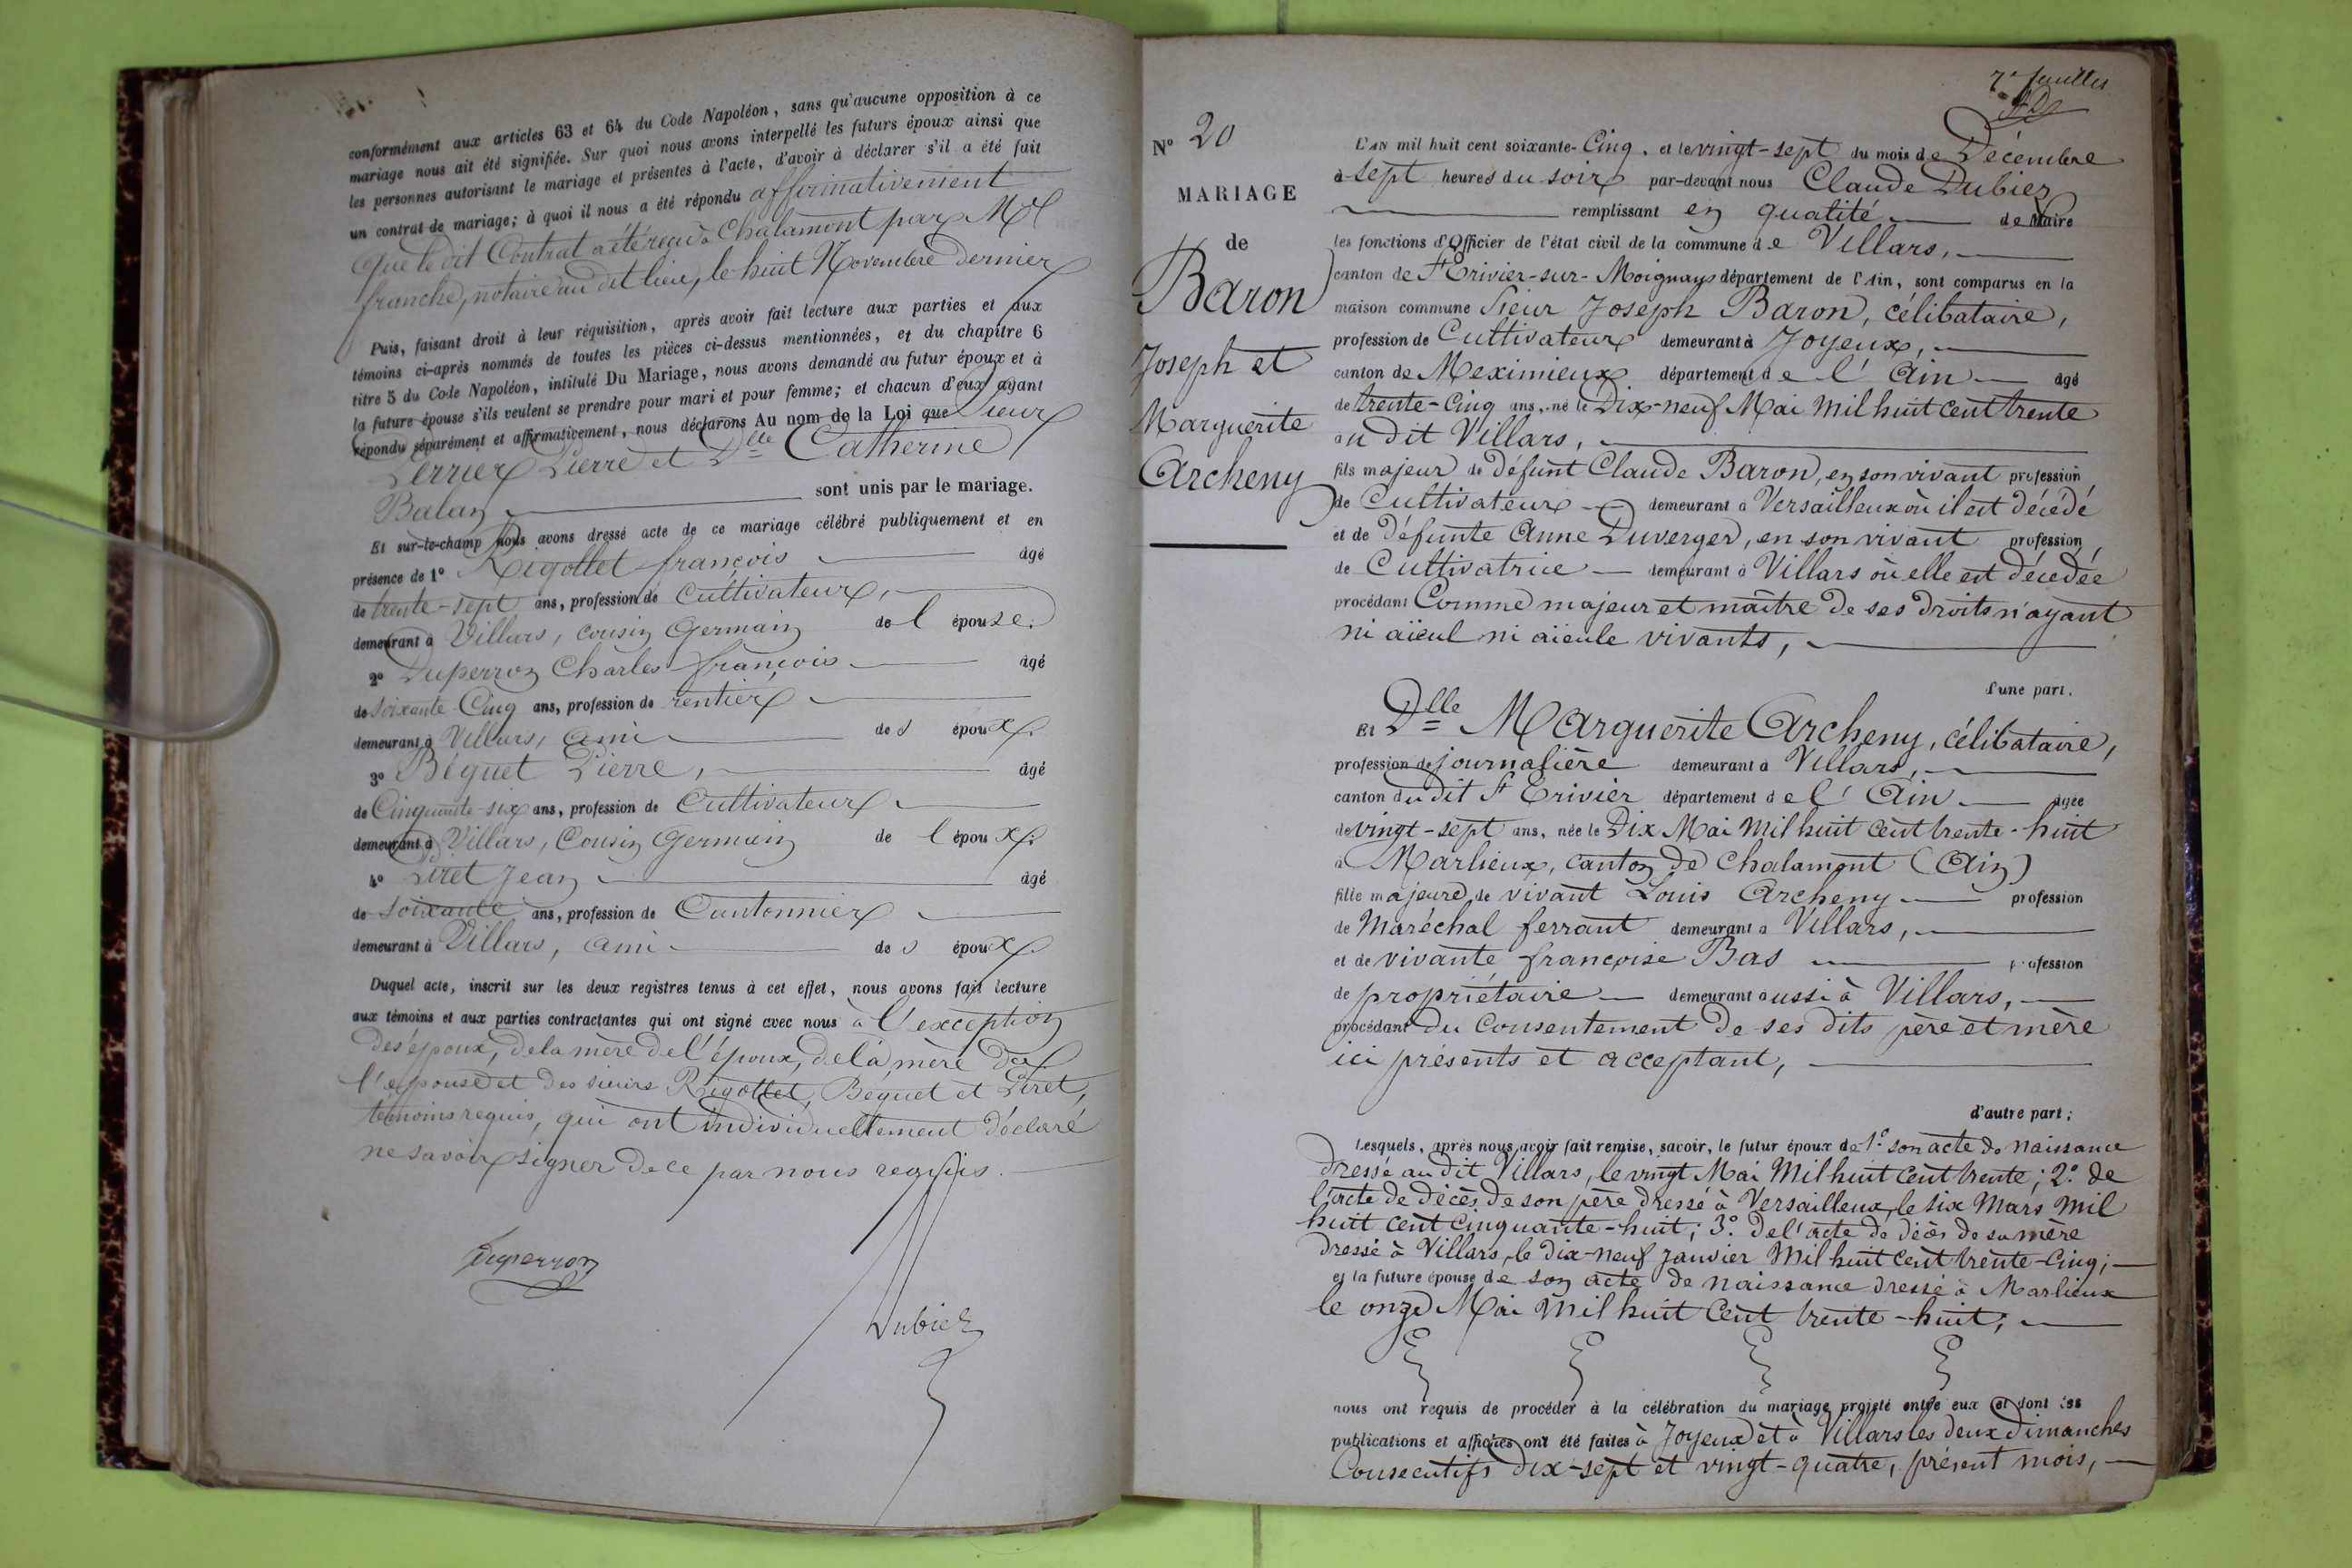 conformément aux articles 63 et 64 du Code Napoléon, sans qu'aucune opposition à ce
mariage nous ait été signifiée. Sur quoi nous avons interpellé les futurs époux ainsi que
les personnes autorisant le mariage et présentes à l'acte, d'avoir à déclarer s'il a été fait
un contrat de mariage; à quoi il nous a été répondu affirmativement
que le dit Contrat a été reçu à Chalamont par
franche, notaire au dit lieu, le huit Novembre dernier
Puis, faisant droit à leur réquisition, après avoir fait lecture aux parties et aux
témoins ci-après nommés de toutes les pièces ci-dessus mentionnées, et du chapitre 6
titre 5 du Code Napoléon, intitulé Du Mariage, nous avons demandé au futur époux et à
la future épouse s'ils veulent se prendre pour mari et pour femme; et chacun d'eux ayant
répondu séparément et affirmativement, nous déclarons Au nom de la Loi que Sieur
Perrier Pierre et Dlle Catherine
Balan sont unis par le mariage.
Et sur-le-champ nous avons dressé acte de ce mariage célébré publiquement et en
présence de 1° Rigollet françois âgé
de trente-sept ans, profession de Cultivateur,
demeurant à Villars, cousin Germain de l épouse.
2° Duperron Charles françois âgé
de soixante Cinq ans, profession de rentier
demeurant à Villars, ami des époux.
3° Béguet Pierre, âgé
de Cinquante-six ans, profession de Cultivateur
demeurant à Villars, Cousin Germain de l époux.
4° Piret Jean âgé
de soixante ans, profession de Cantonnier
demeurant à Villars, ami des époux
Duquel acte, inscrit sur les deux registres tenus à cet effet, nous avons fait lecture
aux témoins et aux parties contractantes qui ont signé avec nous à l'exception
des époux, de la mère de l'époux, de la mère de
l'épouse et des sieurs Rigollet, Béguet et Piret,
témoins requis, qui ont individuellement déclaré
ne savoir signer de ce par nous requis.
Duperron
Dubiez
7e feuillet
N° 20
MARIAGE
de
Baron
Joseph et
Marguerite
Archeny
L'AN mil huit cent soixante-Cinq, et le vingt-sept du mois de Décembre
à sept heures du soir par-devant nous Claude Dubiez
remplissant en qualité de Maire
les fonctions d'Officier de l'état civil de la commune de Villars,
canton de St Trivier-sur-Moignans département de l'Ain, sont comparus en la
maison commune Sieur Joseph Baron, célibataire,
profession de Cultivateur demeurant à Joyeux,
canton de Meximieux département de l'Ain âgé
de trente-Cinq ans, né le Dix-neuf Mai Mil huit cent trente
au dit Villars,
fils majeur de défunt Claude Baron, en son vivant profession
de Cultivateur demeurant à Versailleux où il est décédé
et de défunte Anne Duverger, en son vivant profession
de Cultivatrice demeurant à Villars où elle est décédée
procédant Comme majeur et maître de ses droits n'ayant
ni aïeul ni aïeule vivants,
d'une part.
Et Dlle Marguerite Archeny, célibataire,
profession de journalière demeurant à Villars,
canton du dit St Trivier département de l'Ain âgée
de vingt-sept ans, née le Dix Mai Mil huit cent trente-huit
à Marlieux, canton de Chalamont (Ain)
fille majeure de vivant Louis Archeny profession
de Maréchal ferrant demeurant à Villars,
et de vivante françoise Bas profession
de propriétaire demeurant aussi à Villars,
procédant du Consentement de ses dits père et mère
ici présents et acceptant,
d'autre part;
Lesquels, après nous avoir fait remise, savoir, le futur époux de 1° son acte de naissance
dressé au dit Villars, le vingt Mai Mil huit cent trente; 2° de
l'acte de décès de son père dressé à Versailleux, le six Mars mil
huit cent cinquante-huit; 3° de l'acte de décès de sa mère
dressé à Villars, le dix-neuf janvier Mil huit cent trente-Cinq;
et la future épouse de son acte de naissance dressé à Marlieux
le onze Mai Mil huit Cent trente-huit;
nous ont requis de procéder à la célébration du mariage projeté entre eux et dont les
publications et affiches ont été faites à Joyeux et à Villars les deux dimanches
Consecutifs dix-sept et vingt-quatre, présent mois,